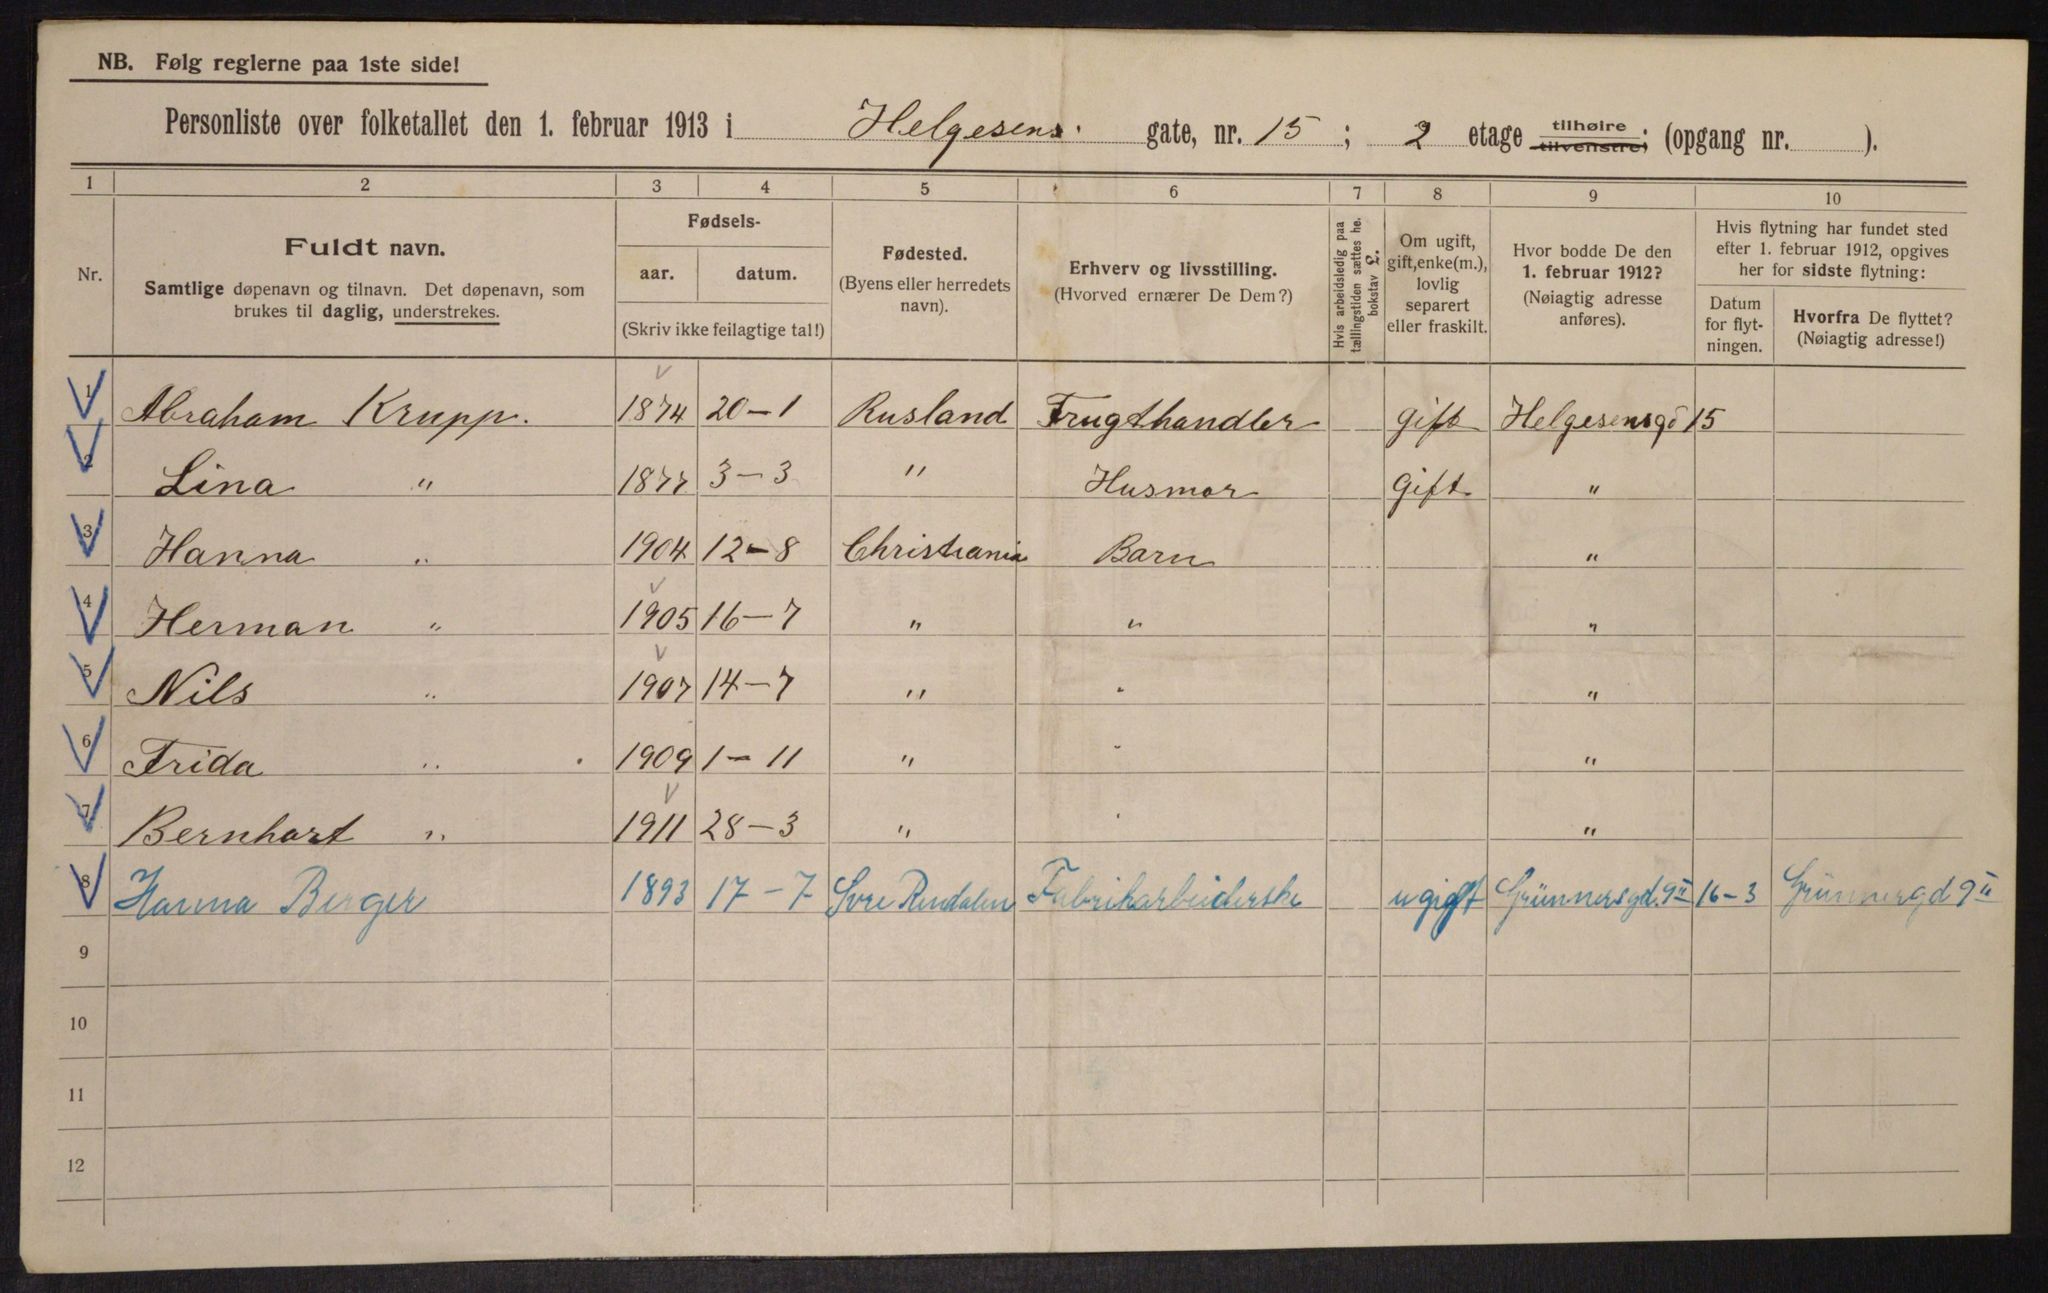 NB. Følg reglerne paa 1ste side!
Personliste over folketallet den 1. februar 1913 i Helgesens gate, nr. 15; 2 etage tilhøire tilvenstre; (opgang nr. ).
1 2 3 4 5 6 7 8 9 10
Nr.
Fuldt navn.
Samtlige døpenavn og tilnavn. Det døpenavn, som
brukes til daglig, understrekes.
Fødsels-
aar. datum.
(Skriv ikke feilagtige tal!)
Fødested.
(Byens eller herredets
navn).
Erhverv og livsstilling.
(Hvorved ernærer De Dem?)
Hvis arbeidsledig paa
tællingstiden sættes he.
bokstav L.
Om ugift,
gift, enke(m.),
lovlig
separert
eller fraskilt.
Hvor bodde De den
1. februar 1912?
(Nøiagtig adresse
anføres).
Hvis flytning har fundet sted
efter 1. februar 1912, opgives
her for sidste flytning:
Datum
for flyt-
ningen.
Hvorfra De flyttet?
(Nøiagtig adresse!)
1 Abraham Krupp. 1874 20-1 Rusland Frugthandler gift Helgesensgd 15
2 Lina " 1877 3-3 " Husmor Gift "
3 Hanna " 1904 12-8 Christiania Barn "
4 Herman " 1905 16-7 " " "
5 Nils " 1907 14-7 " " "
6 Frida " 1909 1-11 " " "
7 Bernhart " 1911 28-3 " " "
8 Hanna Berger 1893 17-7 Øvre Rendalen Fabrikarbeiderske ugift Grünnersgd. 9II 16-3 Grünnergd 9II
9
10
11
12